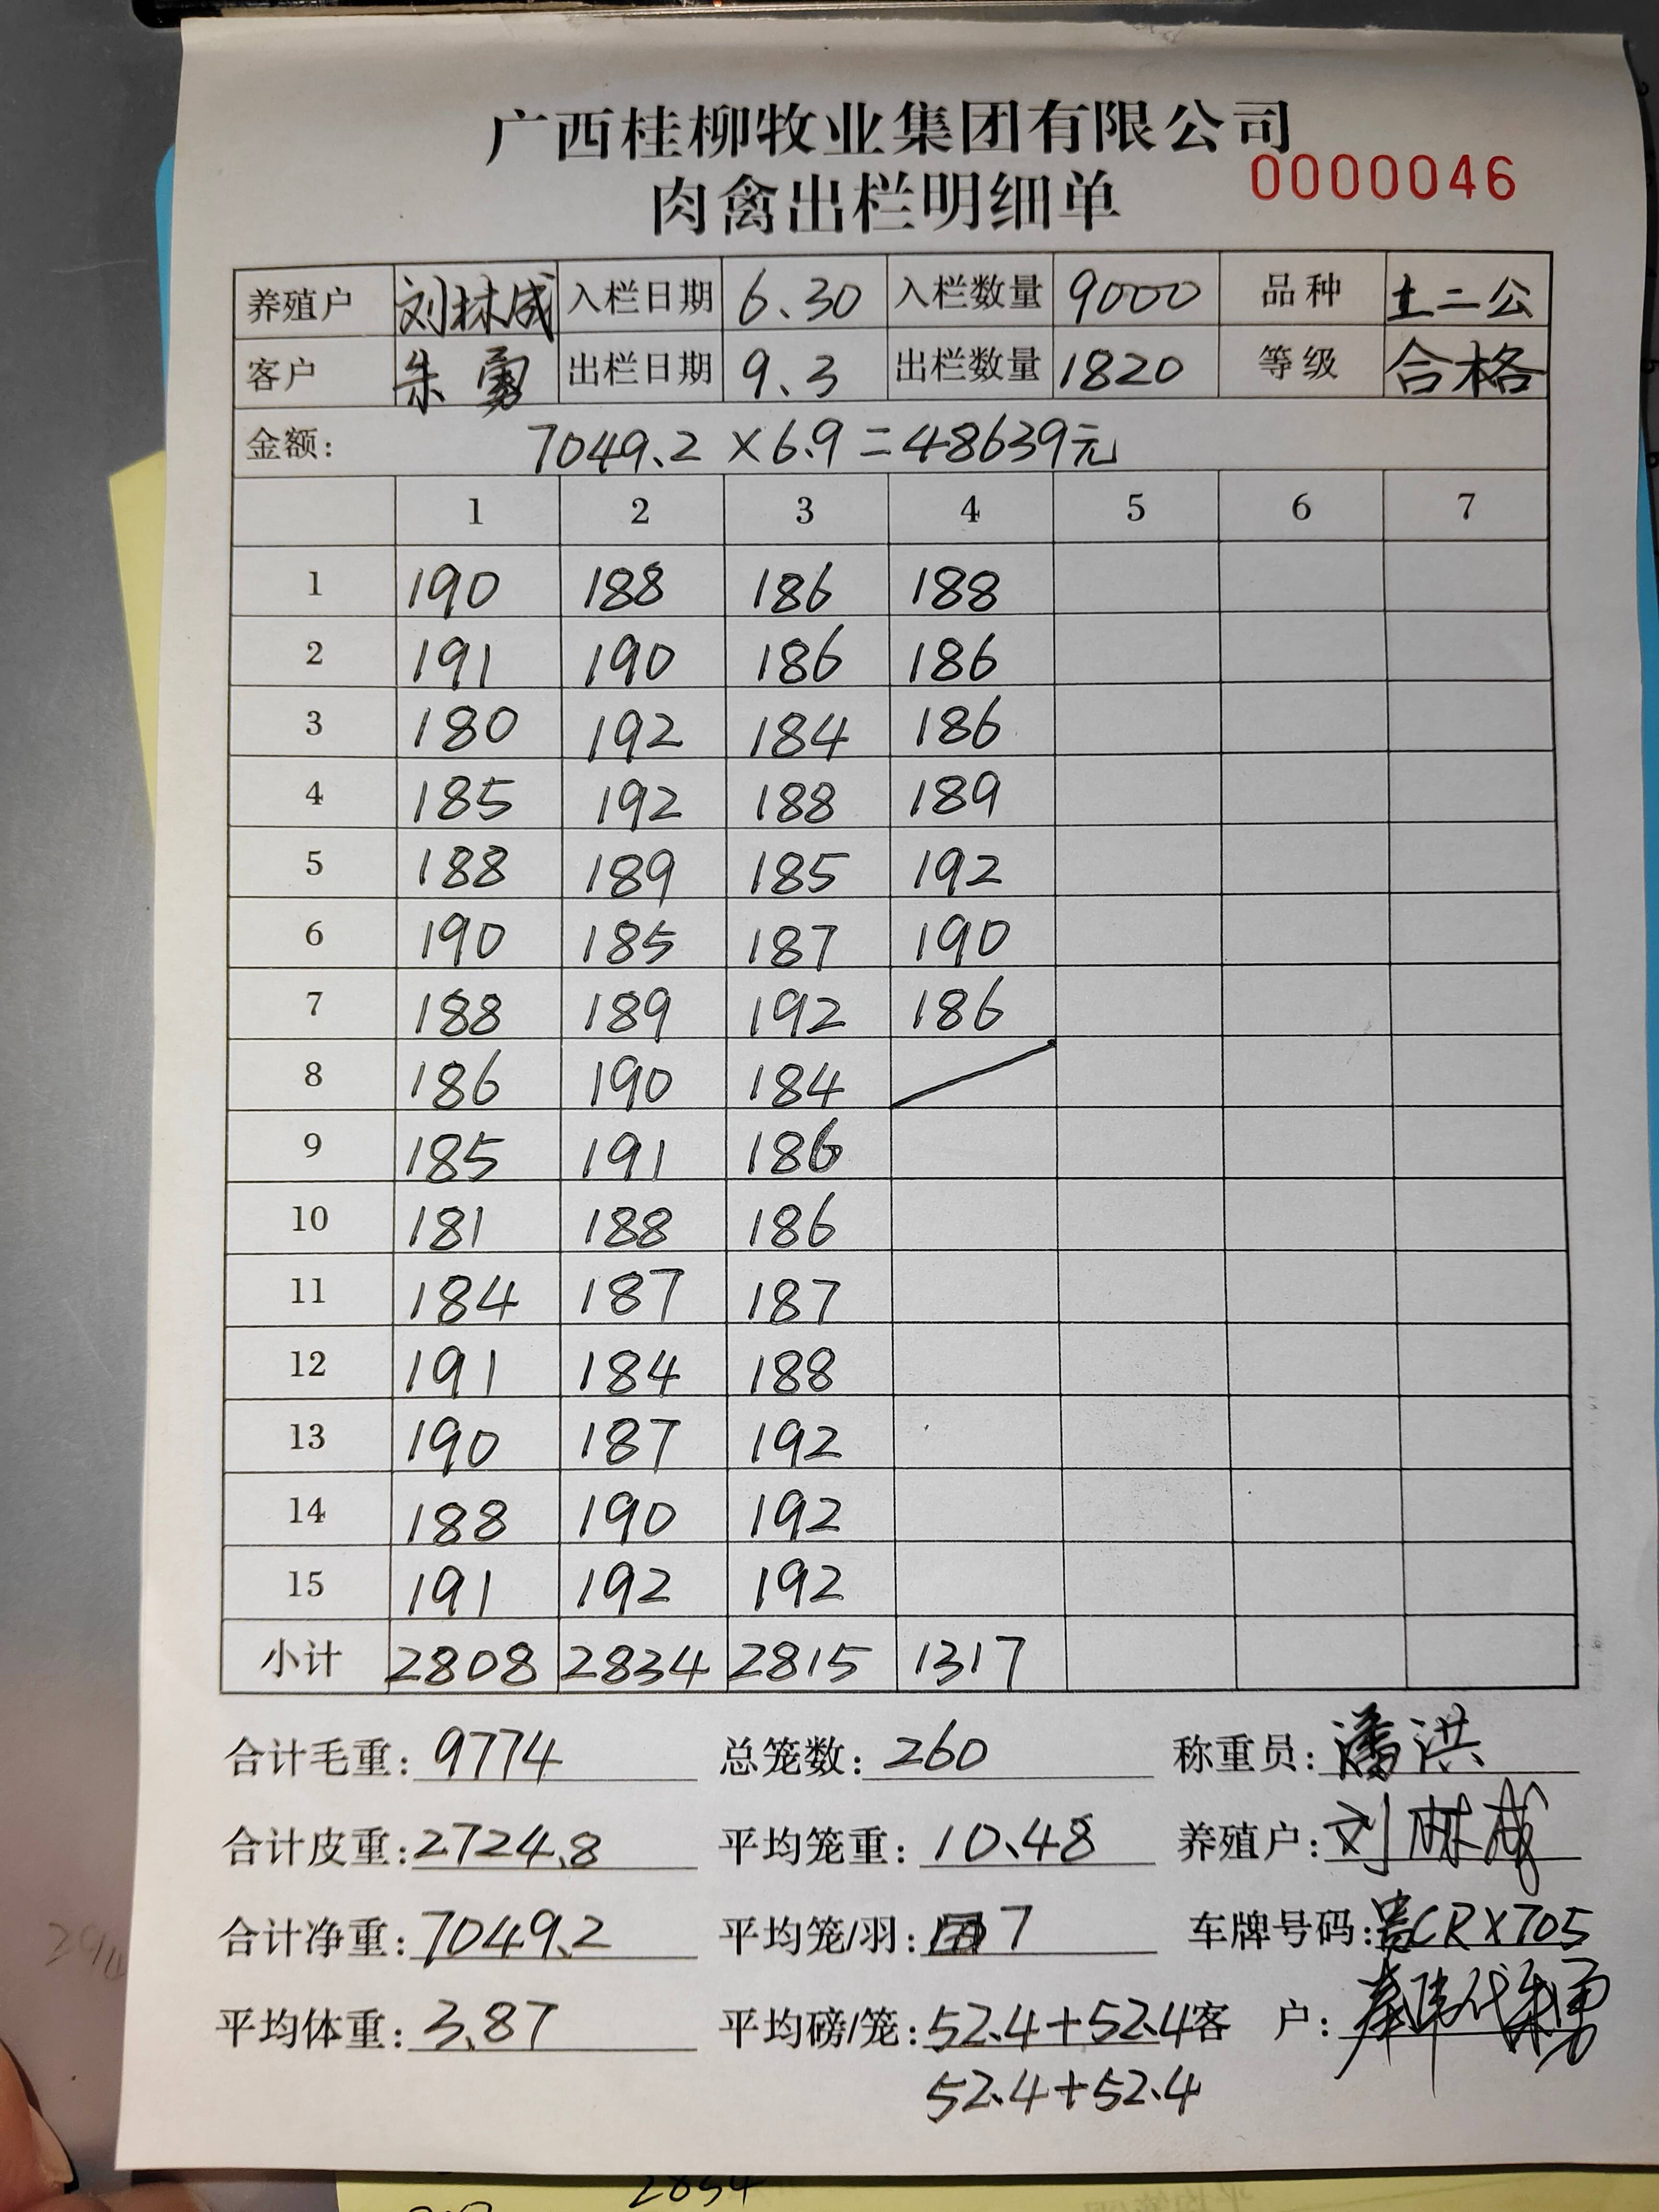 广西桂柳牧业集团有限公司
肉禽出栏明细单 0000046
养殖户 刘林成 入栏日期 6.30 入栏数量 9000 品种 土二公
客户 朱勇 出栏日期 9.3 出栏数量 1820 等级 合格
金额: 7049.2×6.9=48639元
1 2 3 4 5 6 7
1 190 188 186 188
2 191 190 186 186
3 180 192 184 186
4 185 192 188 189
5 188 189 185 192
6 190 185 187 190
7 188 189 192 186
8 186 190 184
9 185 191 186
10 181 188 186
11 184 187 187
12 191 184 188
13 190 187 192
14 188 190 192
15 191 192 192
小计 2808 2834 2815 1317
合计毛重: 9774 总笼数: 260 称重员: 潘洪
合计皮重: 2724.8 平均笼重: 10.48 养殖户: 刘林成
合计净重: 7049.2 平均笼/羽: 7 车牌号码: CRX705
平均体重: 3.87 平均磅/笼: 52.4+52.4 客户: 代朱勇
52.4+52.4
2834